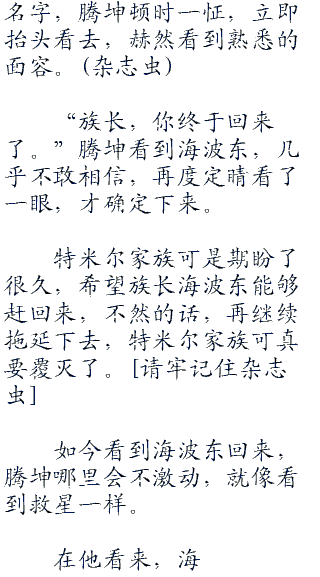 名字，腾坤顿时一怔，立即
抬头看去，赫然看到熟悉的
面容。(杂志虫)
“族长，你终于回来
了。”腾坤看到海波东，几
乎不敢相信，再度定睛看了
一眼，才确定下来。
特米尔家族可是期盼了
很久，希望族长海波东能够
赶回来，不然的话，再继续
拖延下去，特米尔家族可真
要覆灭了。[请牢记住杂志
虫]
如今看到海波东回来，
腾坤哪里会不激动，就像看
到救星一样。
在他看来，海